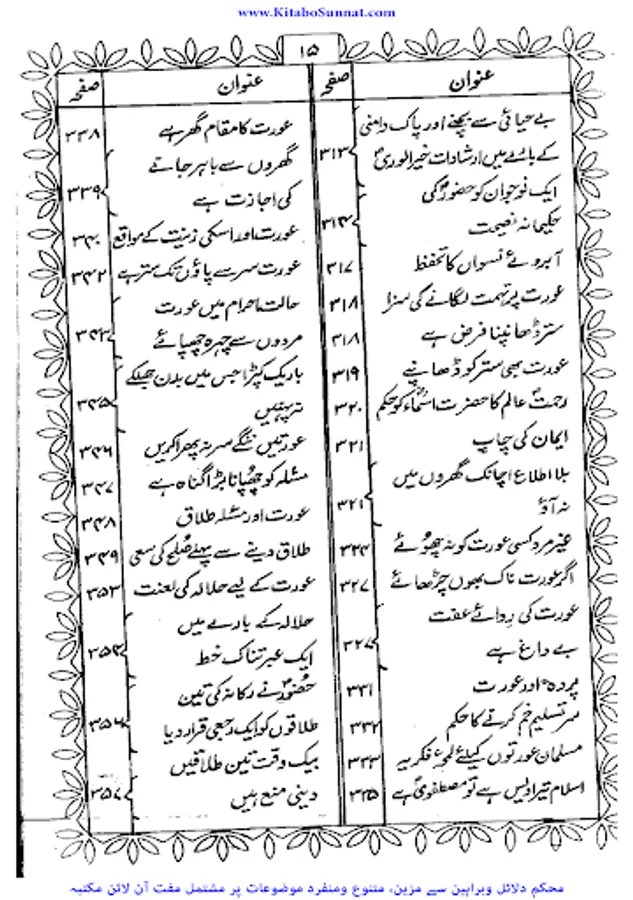 www.KitaboSunnat.com
۱۵
عنوان صفحہ
بے حیائی سے بچنے اور پاک دامنی
کے بارے میں ارشادات خیر الوریٰؐ ۳۱۳
ایک نوجوان کو حضورؐ کی
حکیمانہ نصیحت ۳۱۴
آبروئے نسواں کا تحفظ ۳۱۷
عورت پر تہمت لگانے کی سزا ۳۱۸
ستر ڈھانپنا فرض ہے ۳۱۸
عورت بھی ستر کو ڈھانپے ۳۱۹
رحمت عالم کا حضرت اسماءؓ کو حکم ۳۲۰
ایمان کی چاپ ۳۲۱
بلا اطلاع اچانک گھروں میں
نہ آؤ ۳۲۱
غیر مرد کسی عورت کو نہ چھوئے ۳۲۴
اگر عورت ناک بھوں چڑھائے ۳۲۷
عورت کی ردائے عفت
بے داغ ہے ۳۲۷
پردہ اور عورت ۳۳۱
سر تسلیم خم کرنے کا حکم ۳۳۲
مسلمان عورتوں کیلئے لمحۂ فکریہ ۳۳۳
اسلام تیرا دیس ہے تو مصطفویؐ ہے ۳۳۵
عنوان صفحہ
عورت کا مقام گھر ہے ۳۳۸
گھروں سے باہر جانے
کی اجازت ہے ۳۳۹
عورت اور اسکی زینت کے مواقع ۳۴۰
عورت سر سے پاؤں تک ستر ہے ۳۴۲
حالت احرام میں عورت
مردوں سے چہرہ چھپائے ۳۴۳
باریک کپڑا جس میں بدن جھلکے
نہ پہنیں ۳۴۵
عورتیں ننگے سر نہ پھرا کریں ۳۴۶
مسئلہ کو چھپانا بڑا گناہ ہے ۳۴۷
عورت اور مسئلہ طلاق ۳۴۸
طلاق دینے سے پہلے صلح کی سعی ۳۴۹
عورت کے لیے حلالہ کی لعنت ۳۵۳
حلالہ کے بارے میں
ایک عبرتناک خط ۳۵۴
حضورؐ نے رکانہ کی تین
طلاقوں کو ایک رجعی قرار دیا ۳۵۶
بیک وقت تین طلاقیں
دینی منع ہیں ۳۵۷
محکم دلائل وبراہین سے مزین، متنوع ومنفرد موضوعات پر مشتمل مفت آن لائن مکتبہ